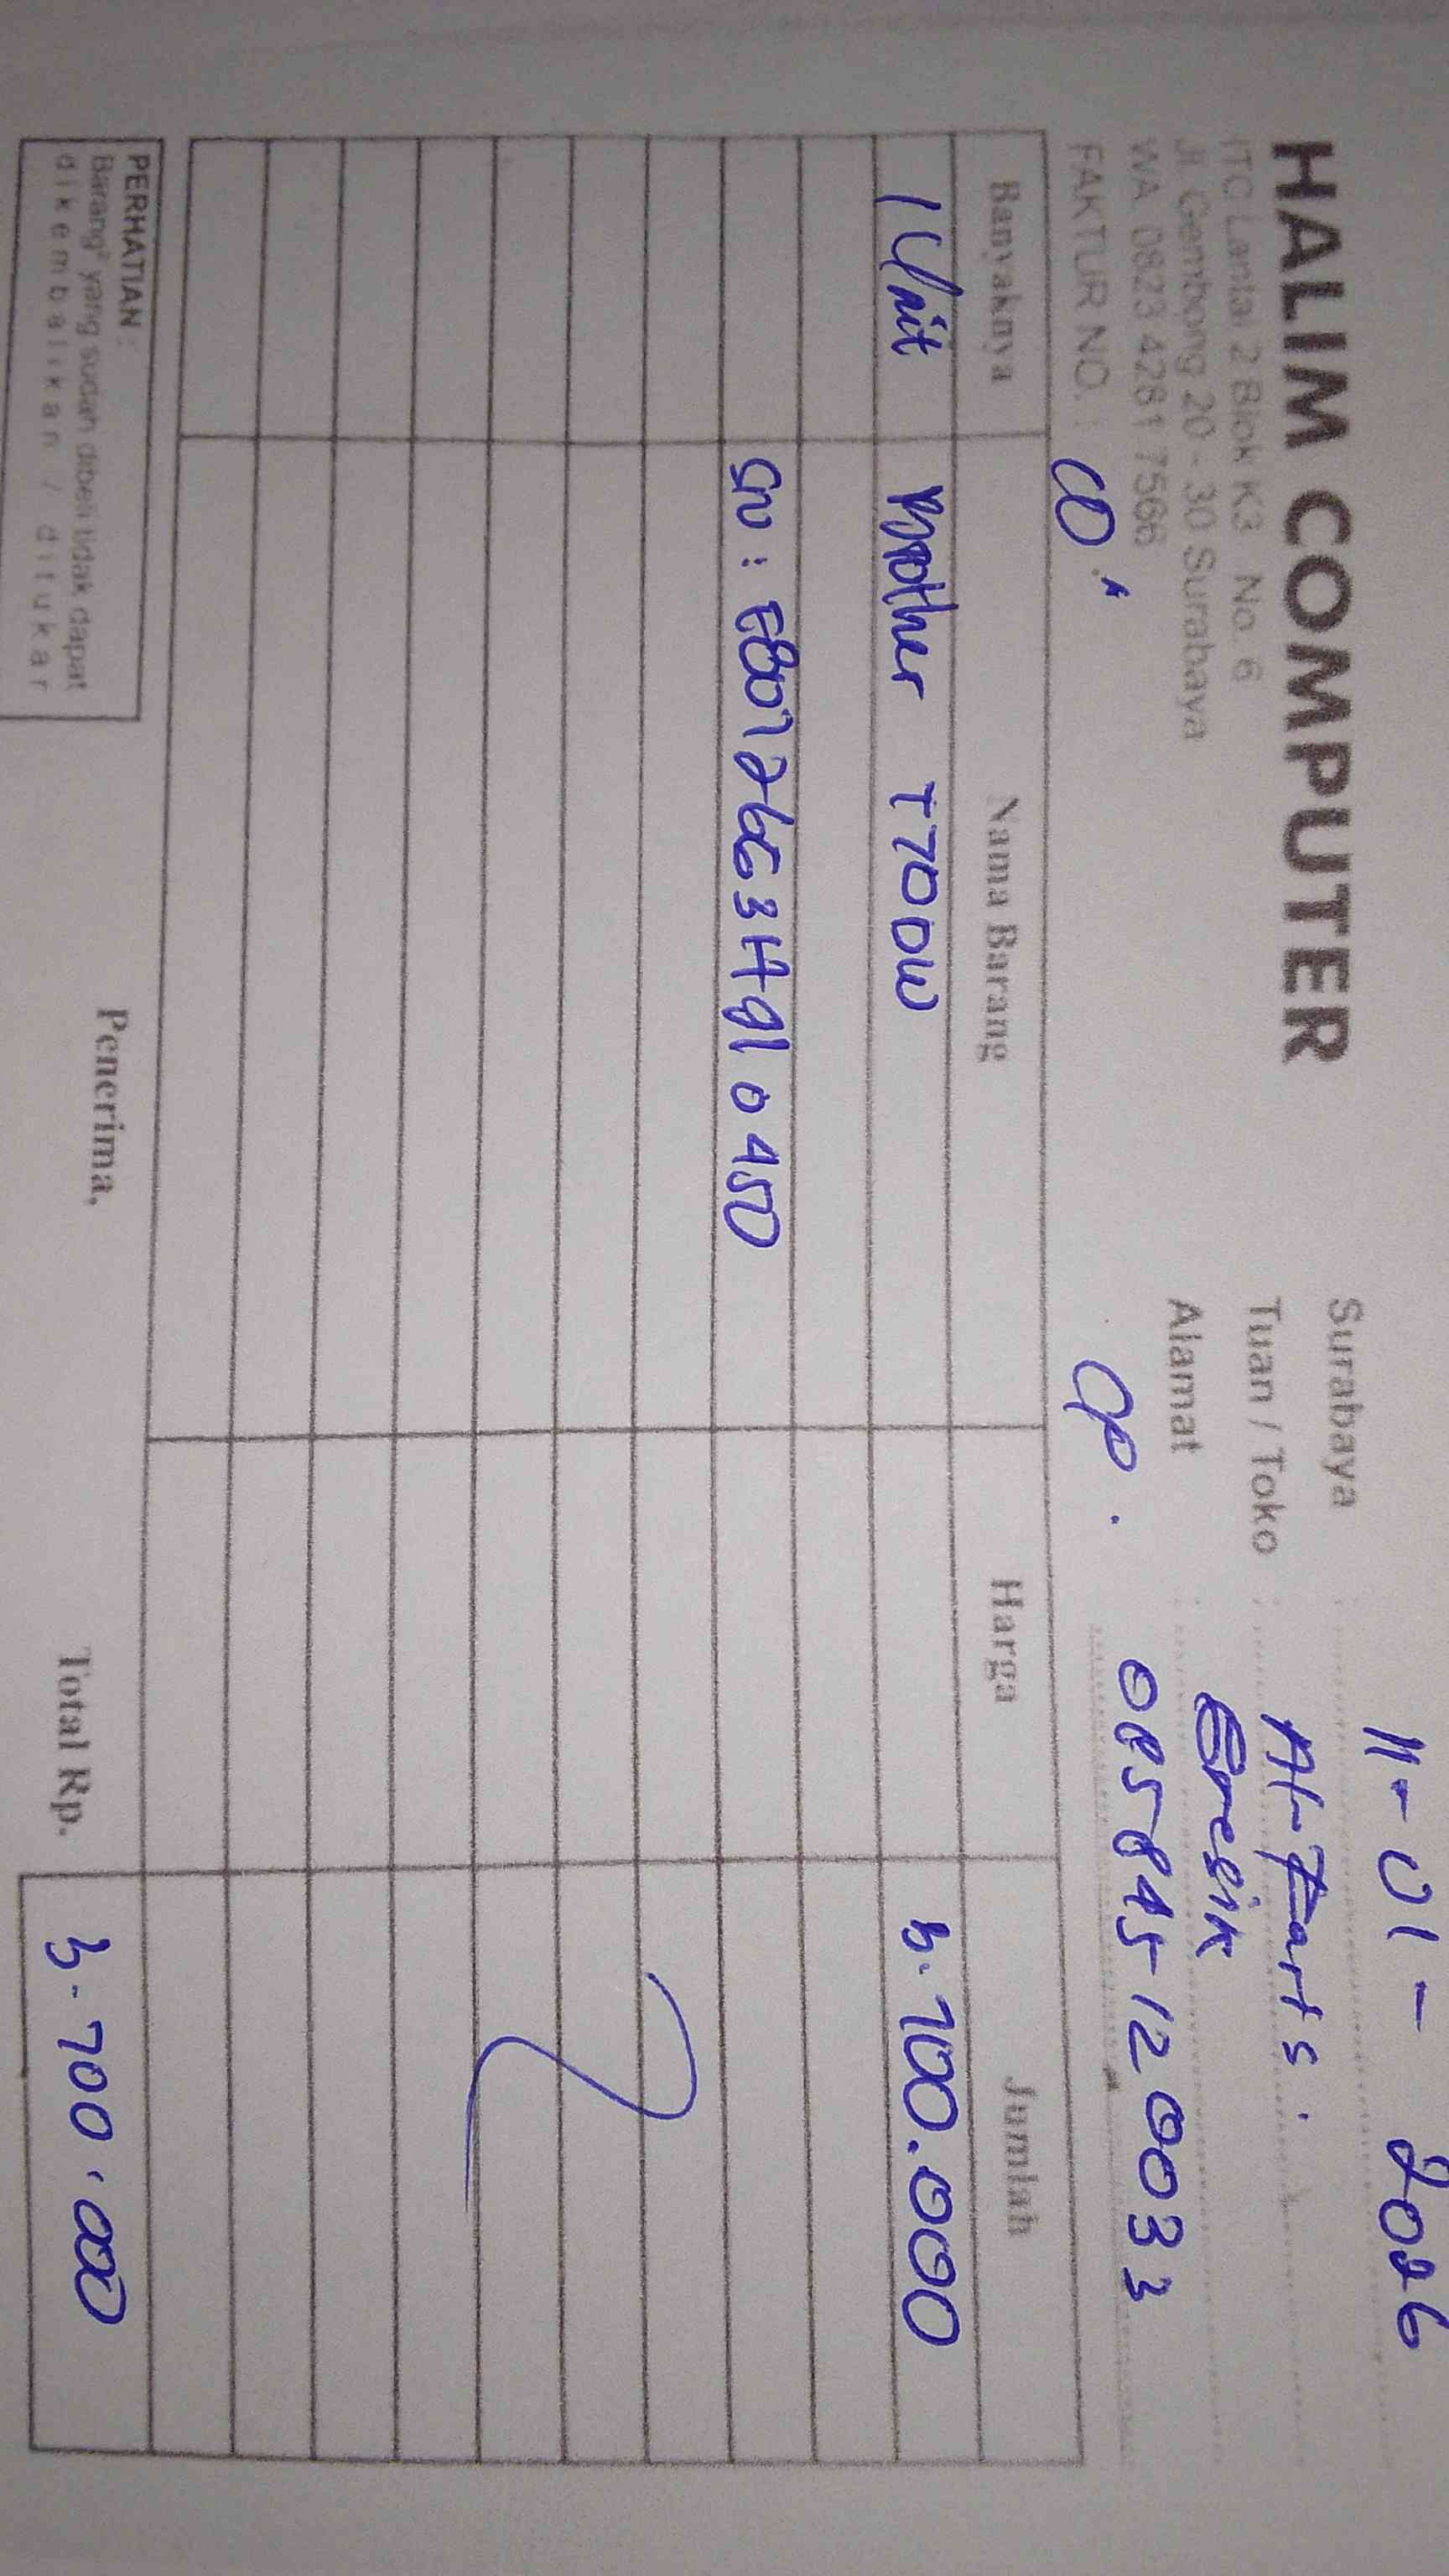 HALIM COMPUTER
ITC Lantai 2 Blok K3 No. 6
Jl. Gembong 20 - 30 Surabaya
WA 0823 4281 7566
FAKTUR NO. :
Surabaya : 11-01-2026
Tuan / Toko :
Alamat : Gresik
CP. 085 845 12 0033
Banyaknya Nama Barang Harga Jumlah
1 Unit Brother T700W 5.700.000
SN :
PERHATIAN :
Barang² yang sudah dibeli tidak dapat
dikembalikan / ditukar
Penerima,
Total Rp. 5.700.000